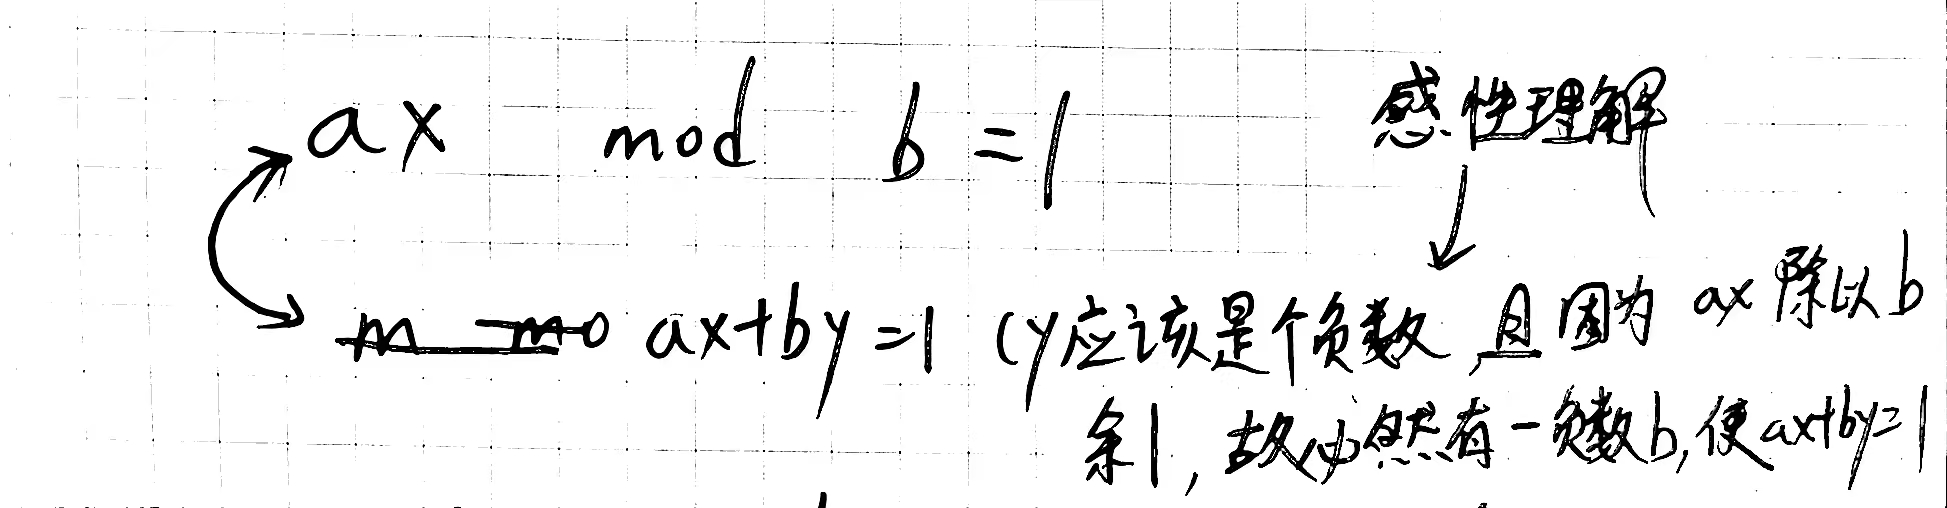 ax mod b = 1
感性理解
ax+by=1 (y应该是个负数,且因为 ax 除以 b
余1,故必然有一负数b,使ax+by=1